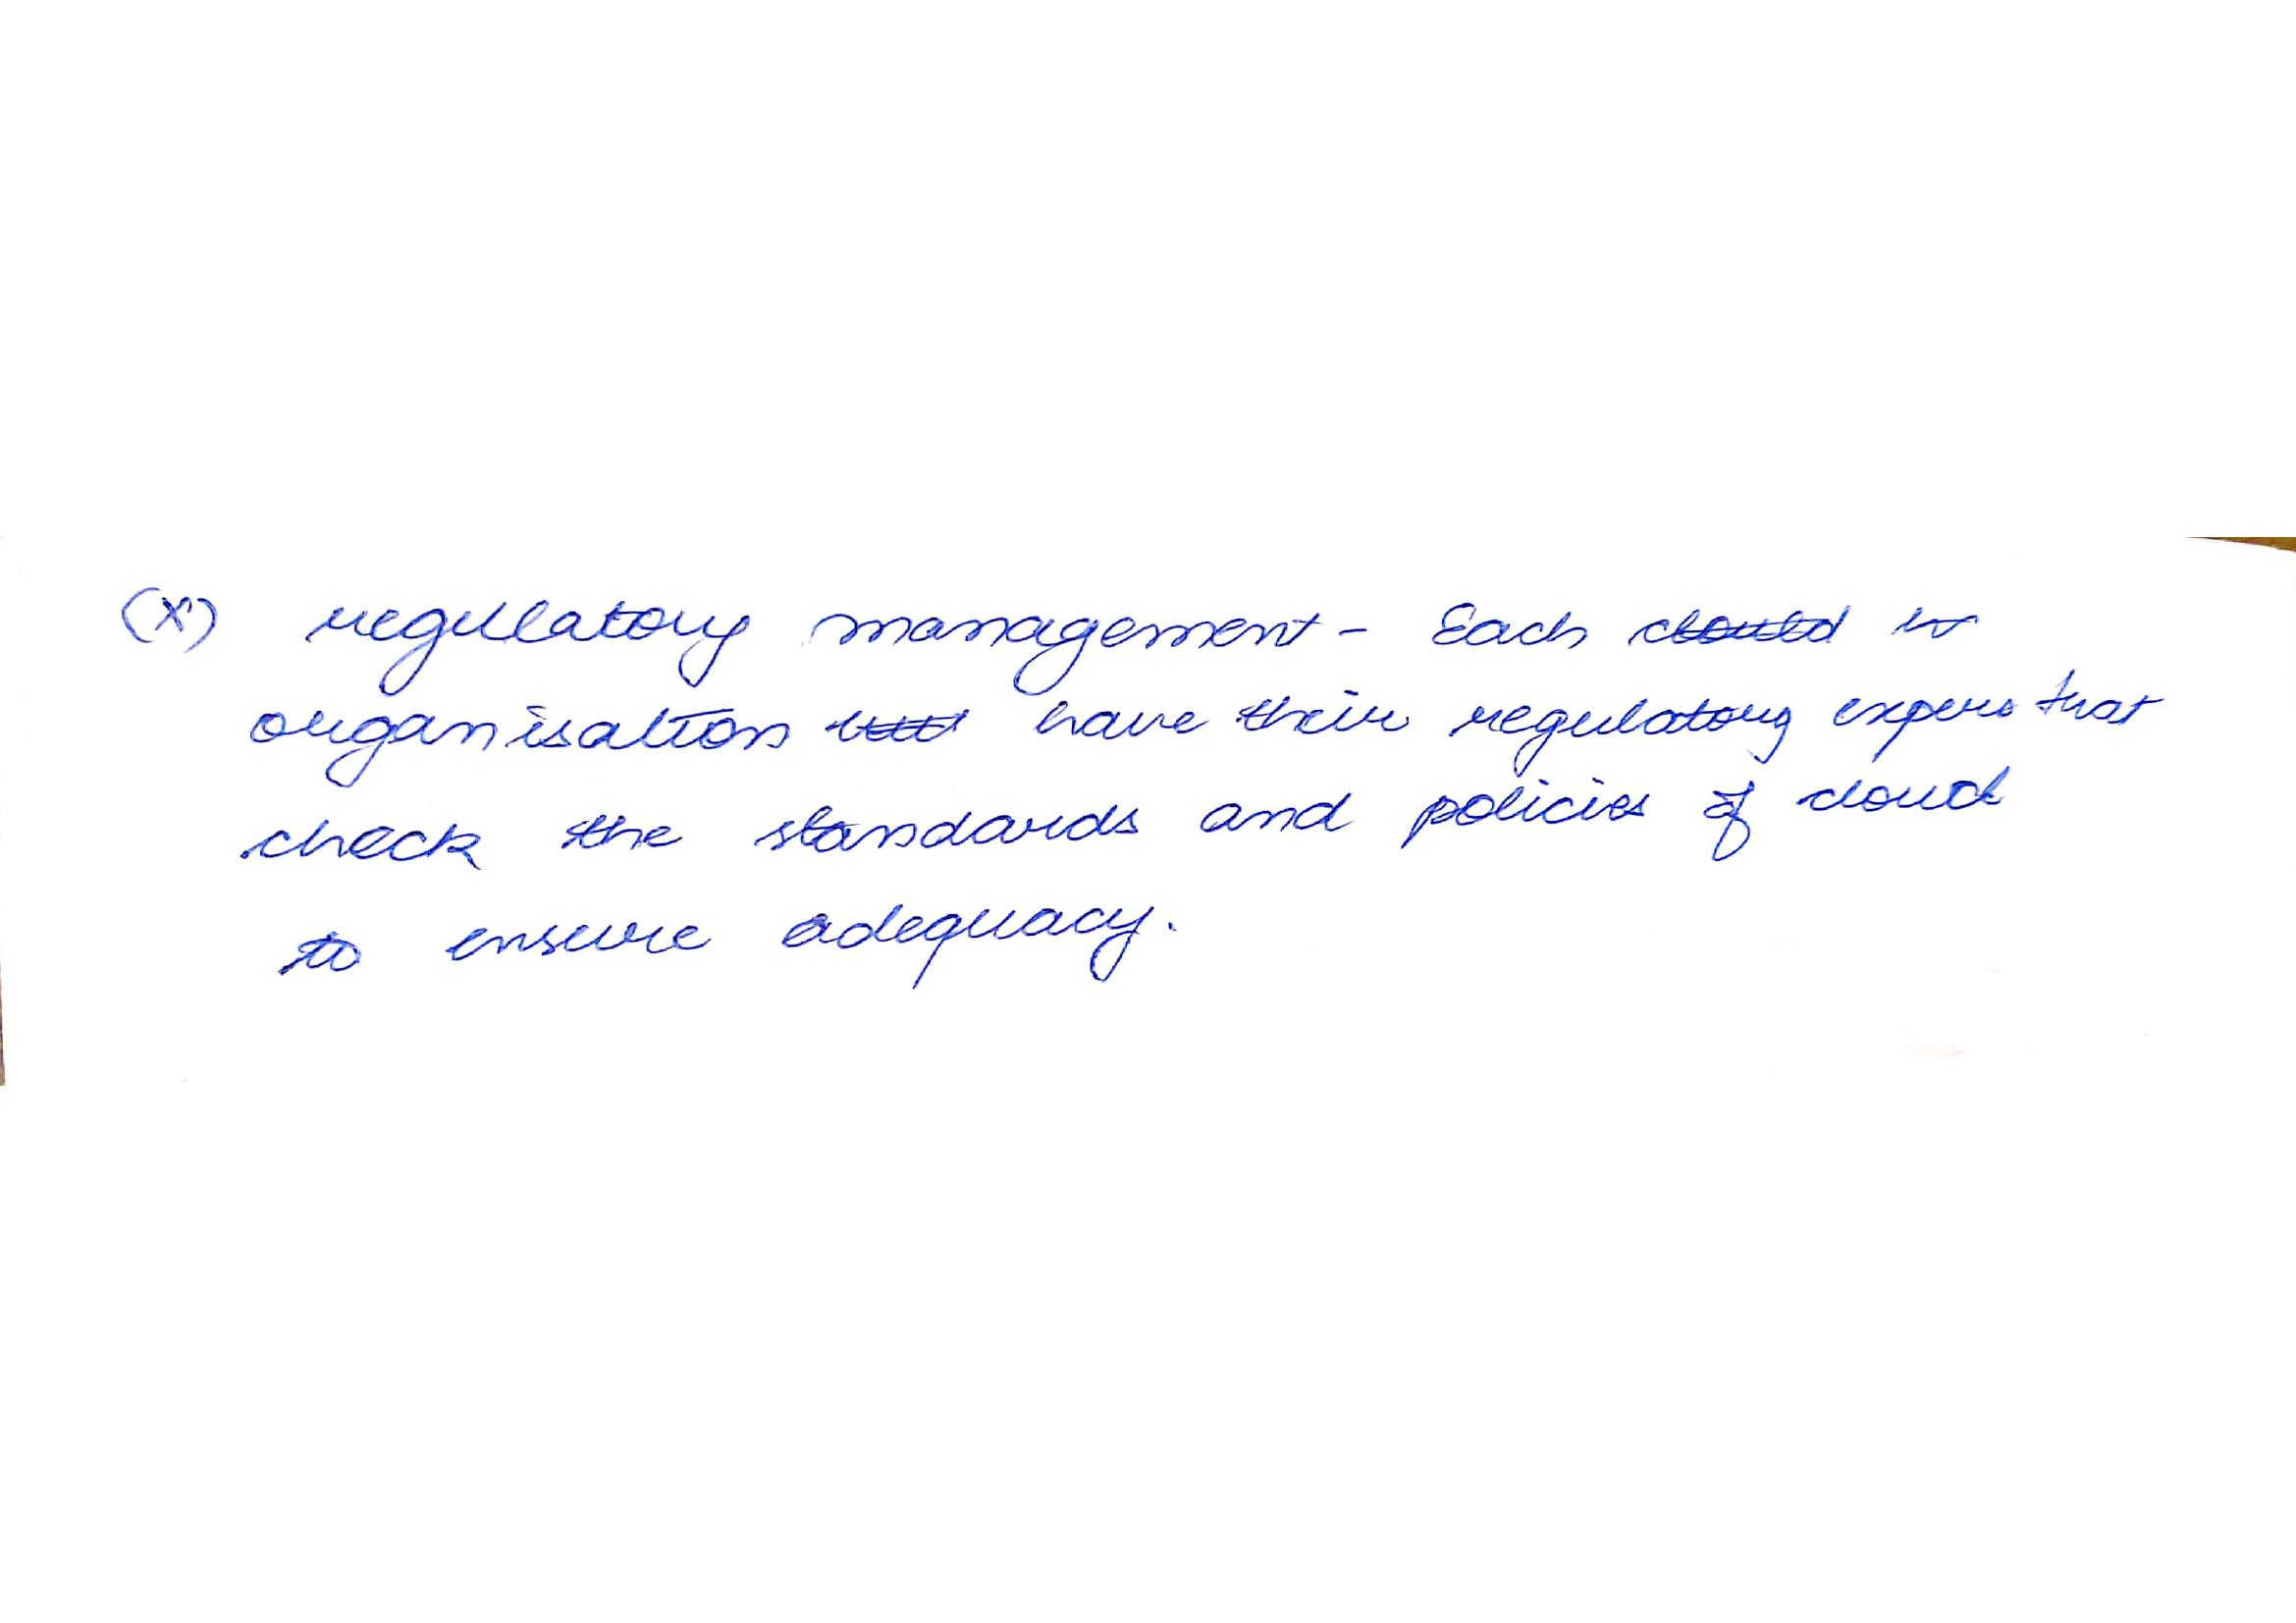 (x) regulatory management - Each
organisation have their regulatory that
check the standards and policies of cloud
to ensure adequacy.